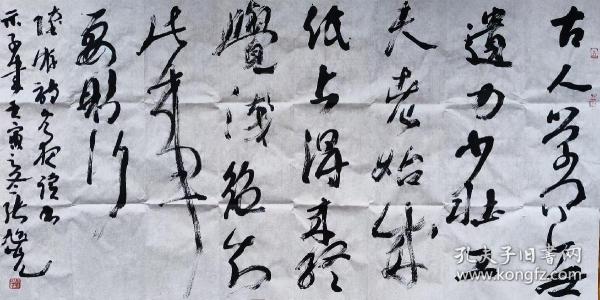 古人学问无
遗力少壮工
夫老始成
纸上得来终
觉浅绝知
此事
要躬行
陆游诗冬夜读书
示子聿 壬寅之冬 张旭光
孔夫子旧书网
kongfz.com